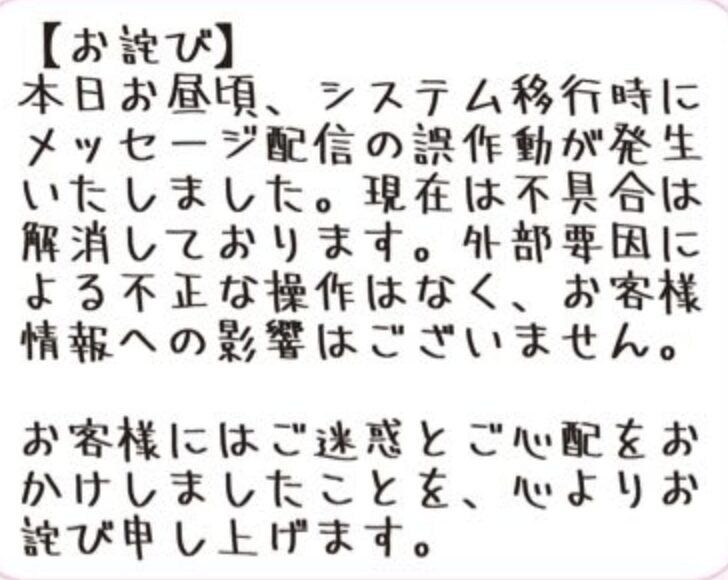 【お詫び】
本日お昼頃、システム移行時に
メッセージ配信の誤作動が発生
いたしました。現在は不具合は
解消しております。外部要因に
よる不正な操作はなく、お客様
情報への影響はございません。
お客様にはご迷惑とご心配をお
かけしましたことを、心よりお
詫び申し上げます。